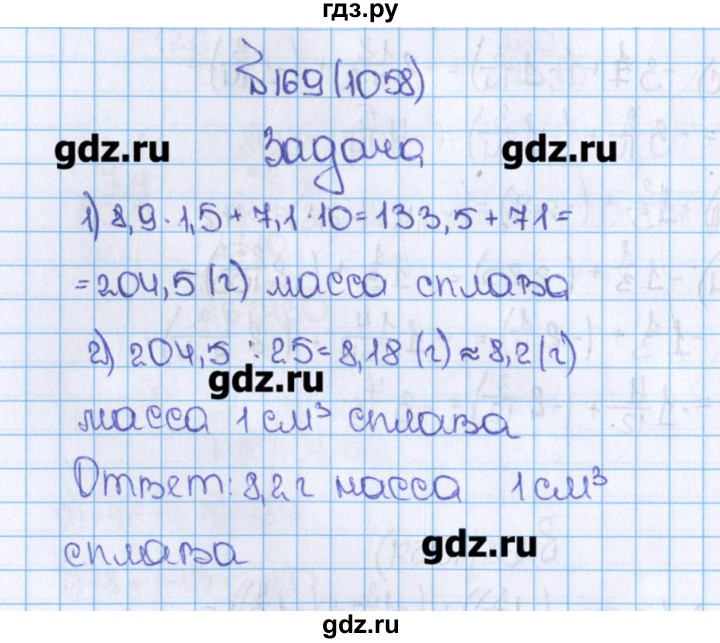 гдз.ру
№169(1058)
gdz.ru Задача gdz.ru
1) 8,9·1,5+7,1·10=133,5+71=
=204,5(г) масса сплава
2) 204,5:25=8,18(г)≈8,2(г)
gdz.ru
масса 1 см³ сплава
Ответ: 8,2 г масса 1 см³
сплава
gdz.ru
gdz.ru